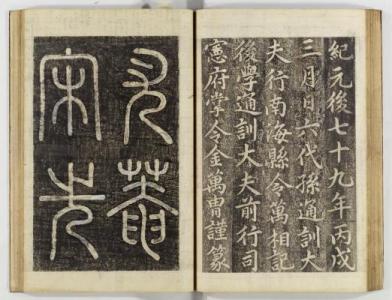 紀元後七十九年丙戌
三月日六代孫通訓大
夫行南海縣令萬相記
後學通訓大夫前行司
憲府掌令金萬胄謹篆
尤菴
宋先